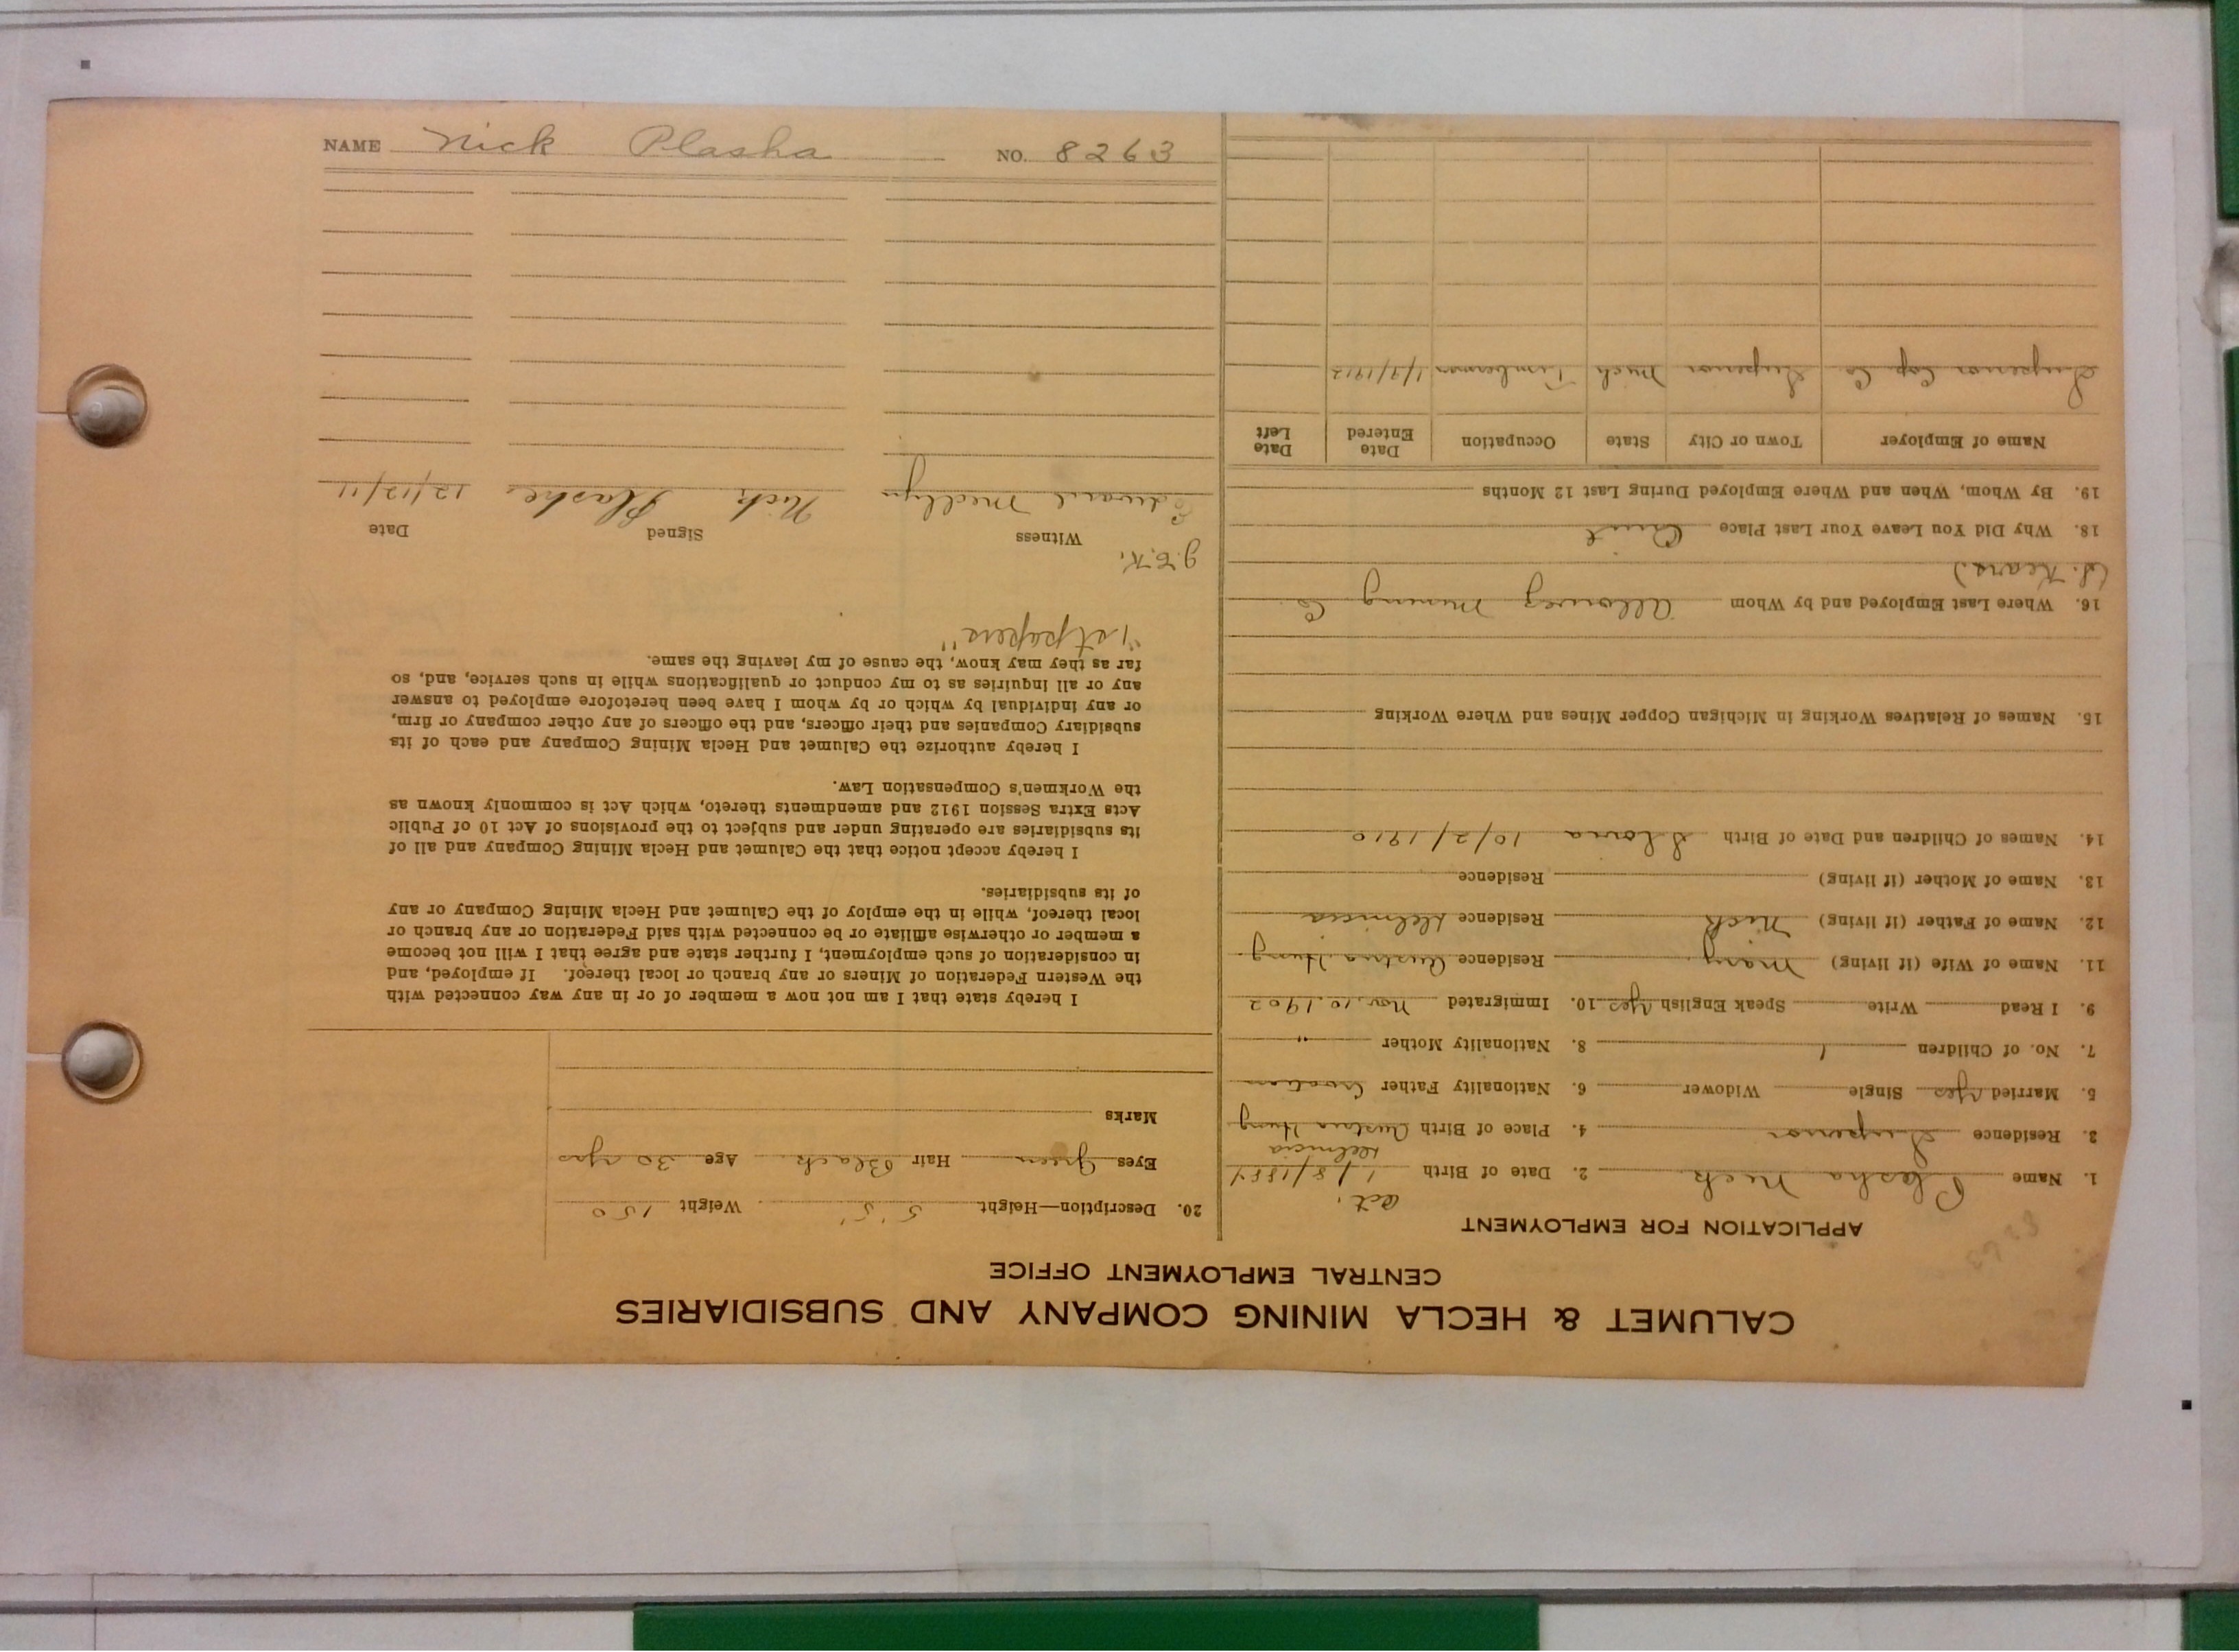 NAME Nick Plasha NO. 8263
CALUMET & HECLA MINING COMPANY AND SUBSIDIARIES
CENTRAL EMPLOYMENT OFFICE
APPLICATION FOR EMPLOYMENT
8263
1. Name Plasha Nick 2. Date of Birth Oct. 1/8/1884
3. Residence Superior 4. Place of Birth Austria Hung
5. Married Yes Single Widower 6. Nationality Father Croatian
7. No. of Children 1 8. Nationality Mother "
9. I Read Write Speak English Yes 10. Immigrated Nov. 10. 1902
11. Name of Wife (if living) Mary Residence Austria Hung.
12. Name of Father (if living) Nick Residence
13. Name of Mother (if living) Residence
14. Names of Children and Date of Birth 10/2/1910
15. Names of Relatives Working in Michigan Copper Mines and Where Working
16. Where Last Employed and by Whom Allouez Mining Co
18. Why Did You Leave Your Last Place Quit
19. By Whom, When and Where Employed During Last 12 Months
Name of Employer Town or City State Occupation Date Entered Date Left
Superior Cop. Co Superior Mich Timberman 1/9/1912
20. Description—Height 5' 5" Weight 150
Eyes Green Hair Black Age 30 yrs
Marks
I hereby state that I am not now a member of or in any way connected with
the Western Federation of Miners or any branch or local thereof. If employed, and
in consideration of such employment, I further state and agree that I will not become
a member or otherwise affiliate or be connected with said Federation or any branch or
local thereof, while in the employ of the Calumet and Hecla Mining Company or any
of its subsidiaries.
I hereby accept notice that the Calumet and Hecla Mining Company and all of
its subsidiaries are operating under and subject to the provisions of Act 10 of Public
Acts Extra Session 1912 and amendments thereto, which Act is commonly known as
the Workmen's Compensation Law.
I hereby authorize the Calumet and Hecla Mining Company and each of its
subsidiary Companies and their officers, and the officers of any other company or firm,
or any individual by which or by whom I have been heretofore employed to answer
any or all inquiries as to my conduct or qualifications while in such service, and, so
far as they may know, the cause of my leaving the same.
"1st papers"
Witness Signed Date
Edward Medlyn Nick Plashe